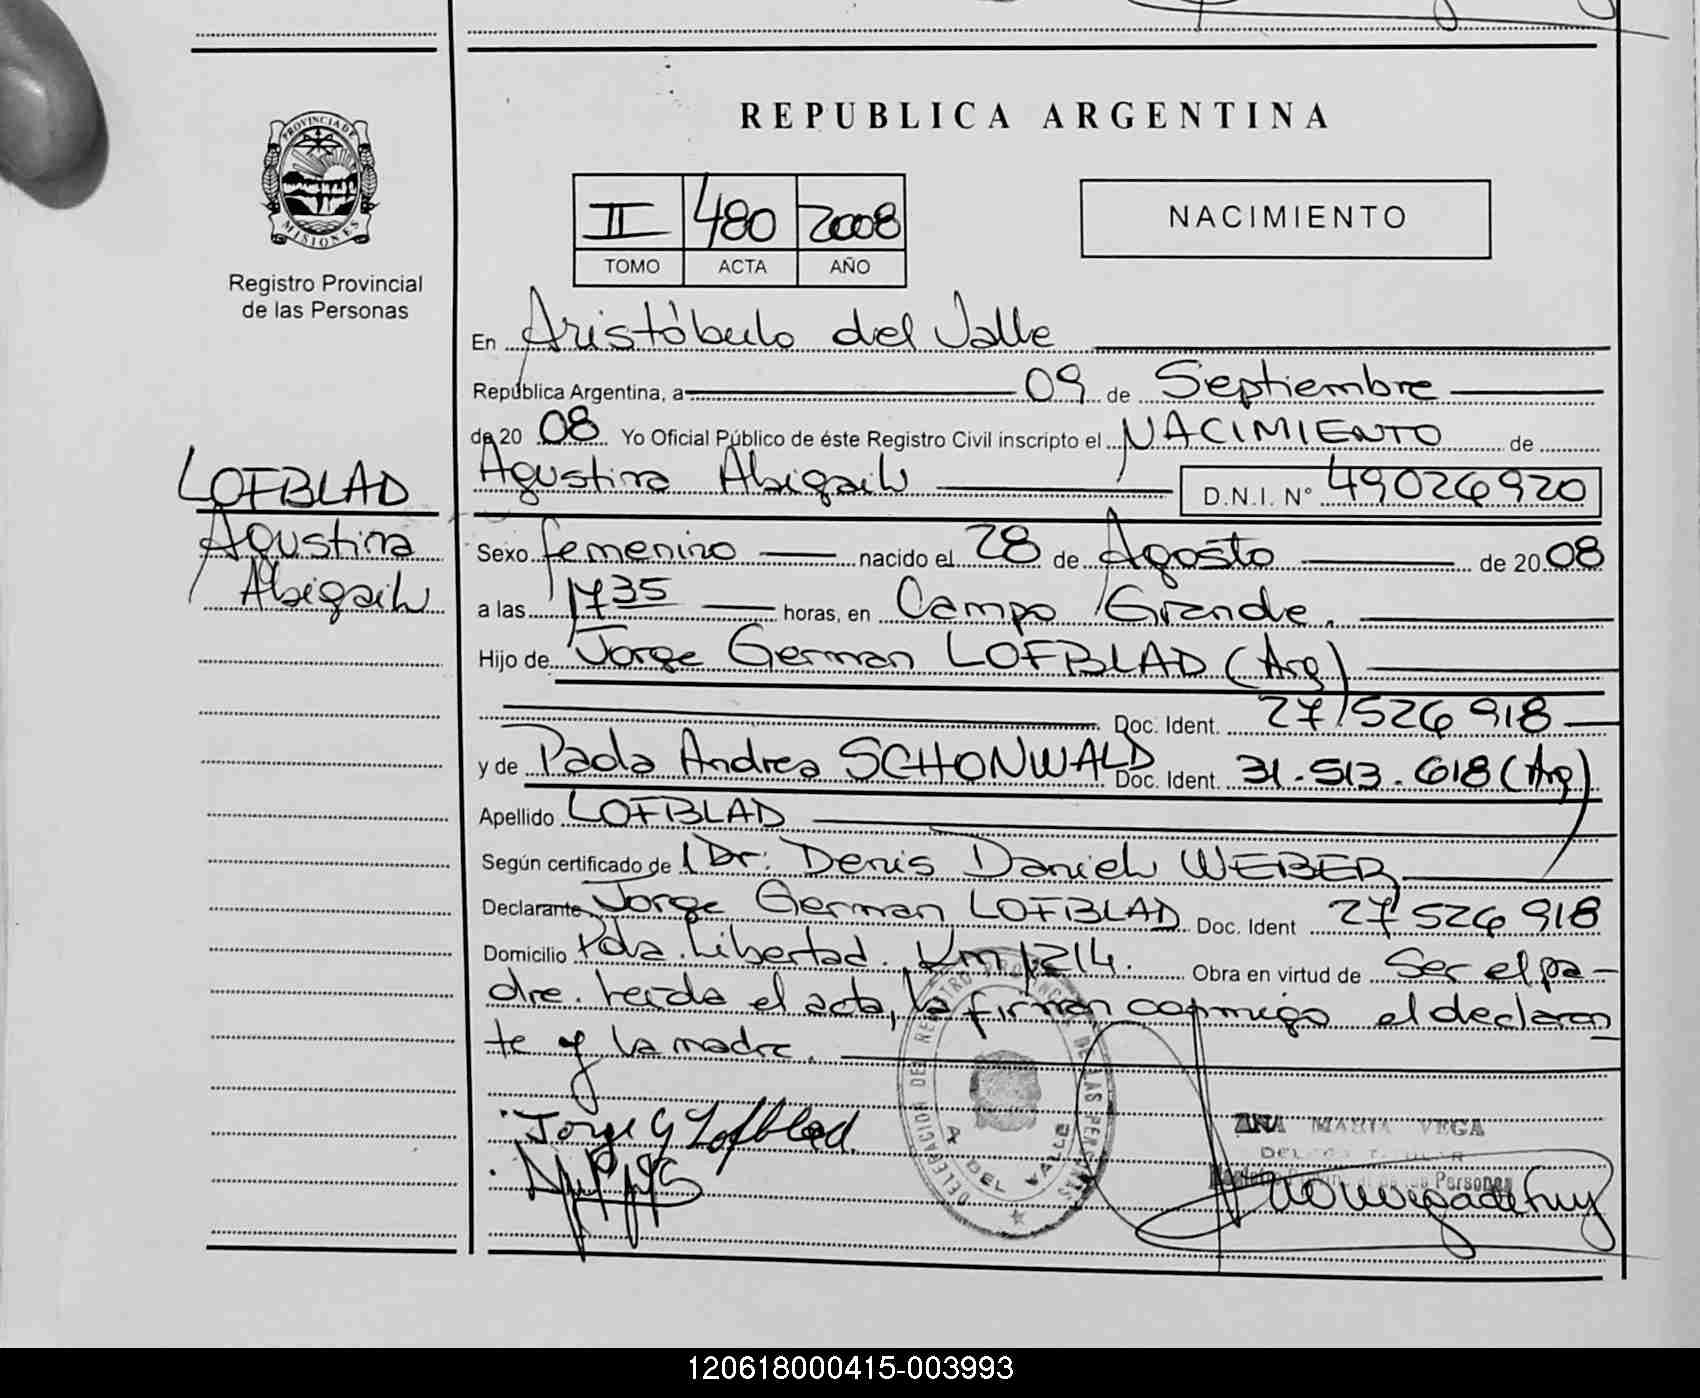 REPUBLICA ARGENTINA
PROVINCIA DE
MISIONES
Registro Provincial
de las Personas
II 480 2008
TOMO ACTA AÑO
NACIMIENTO
En Aristóbulo del Valle
República Argentina, a 09 de Septiembre
de 20 08 Yo Oficial Público de éste Registro Civil inscripto el NACIMIENTO de
Agustina Abigail D.N.I. N° 49026920
LOFBLAD
Agustina
Abigail
Sexo femenino nacido el 28 de Agosto de 20 08
a las 1735 horas, en Campo Grande.
Hijo de Jorge German LOFBLAD (Arg)
Doc. Ident. 27 526 918
y de Paola Andrea SCHONWALD Doc. Ident. 31.513.618 (Arg)
Apellido LOFBLAD
Según certificado de Dr. Denis Daniel WEBER
Declarante Jorge German LOFBLAD Doc. Ident 27 526 918
Domicilio Pda. Libertad. Km 1214. Obra en virtud de Ser el pa-
dre. Leida el acta, la firman conmigo el declaran
te y la madre.
Jorge G Lofblad
DELEGACION DEL REGISTRO PROVINCIAL DE LAS PERSONAS
A DEL VALLE
ANA MARIA VEGA
Personas
120618000415-003993